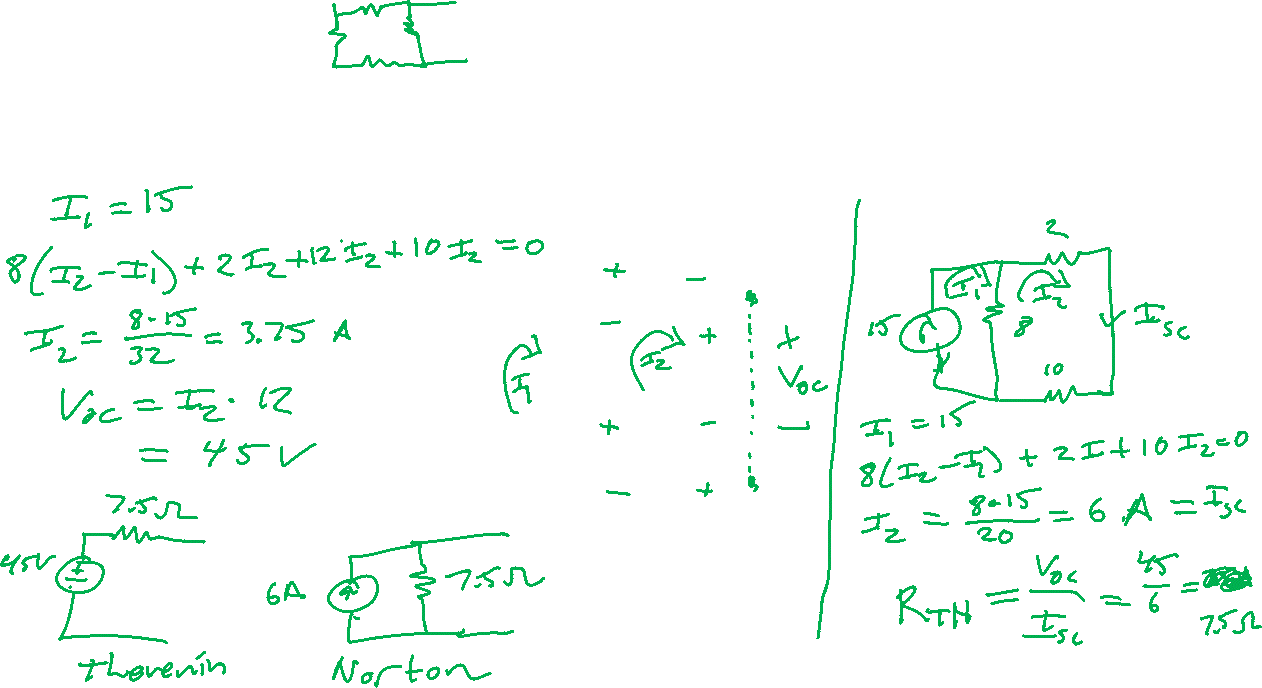 I₁ = 15
8(I₂ - I₁) + 2I₂ + 12I₂ + 10I₂ = 0
I₂ = 8·15/32 = 3.75 A
Voc = I₂ · 12
= 45V
7.5Ω
45V
+
-
Thevenin
6A
7.5Ω
Norton
+ -
- +
I₁
I₂
+
Voc
-
+ -
- +
2
I₁
I₂
15
8
Isc
10
I₁ = 15
8(I₂ - I₁) + 2I + 10I₂ = 0
I₂ = 8·15/20 = 6 A = Isc
RTH = Voc/Isc = 45/6 =
7.5Ω